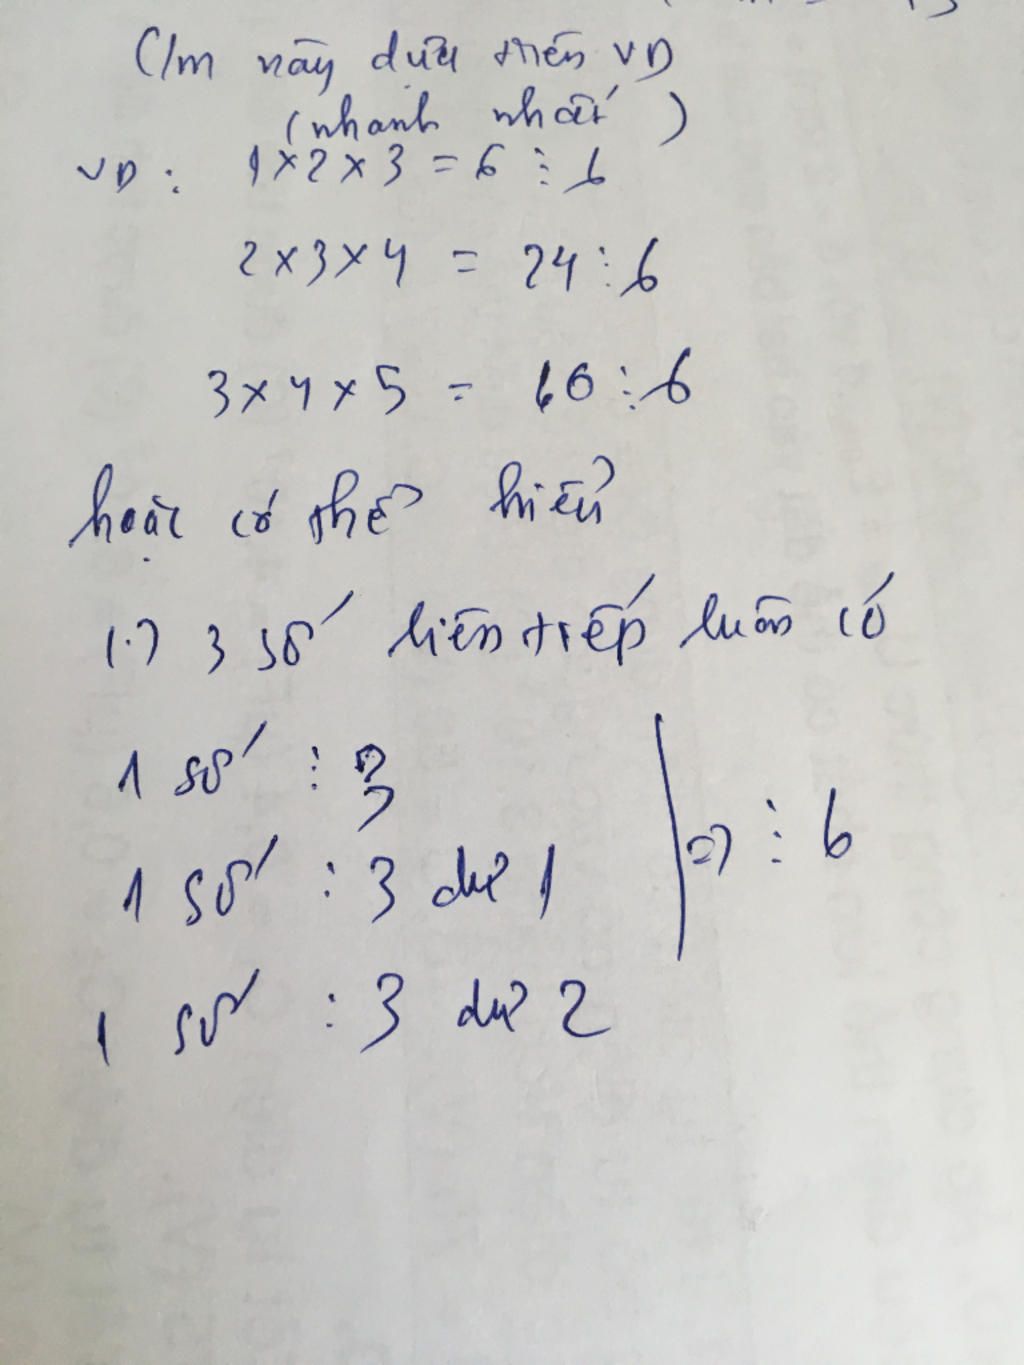 C/m này dựa trên VD
(nhanh nhất)
VD: 1 × 2 × 3 = 6 ⋮ 6
2 × 3 × 4 = 24 ⋮ 6
3 × 4 × 5 = 60 ⋮ 6
hoặc có thể hiểu
(.) 3 số liên tiếp luôn có
1 số ⋮ 3
1 số : 3 dư 1 | => ⋮ 6
1 số : 3 dư 2